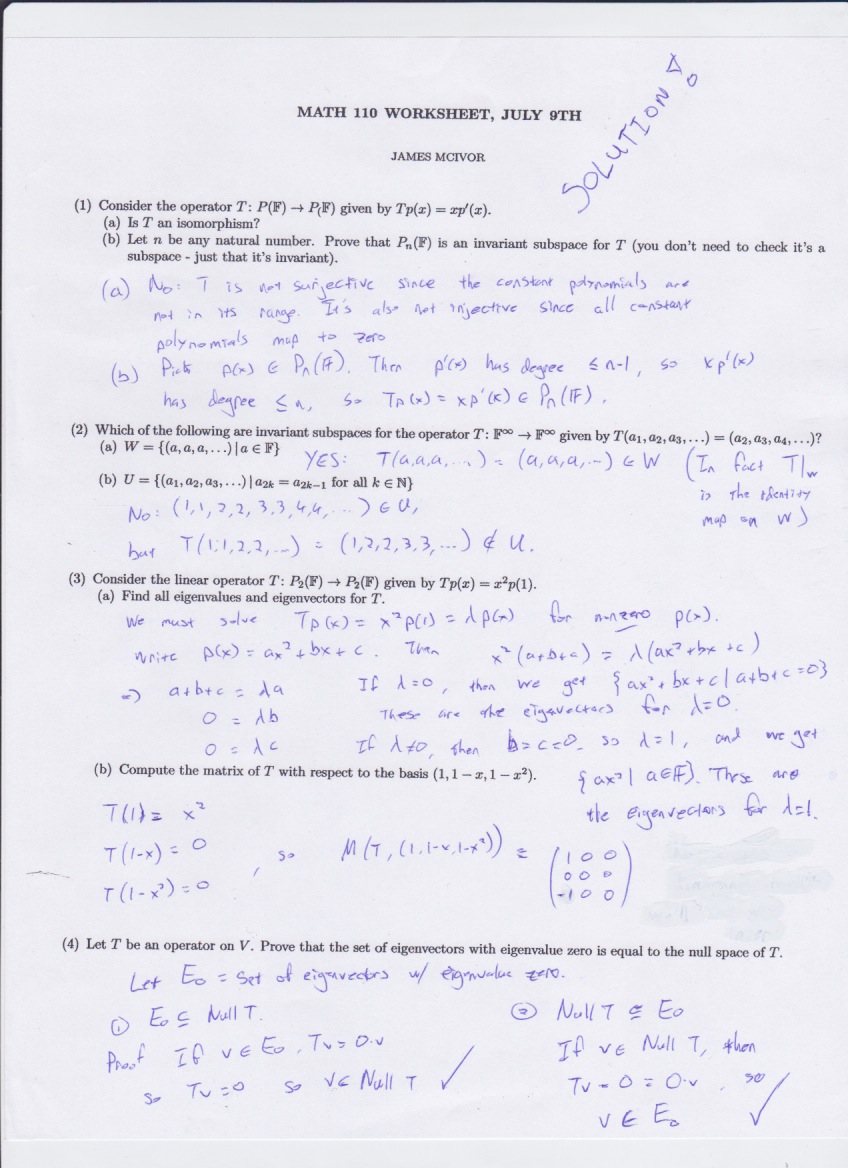 SOLUTIONS
MATH 110 WORKSHEET, JULY 9TH
JAMES MCIVOR
(1) Consider the operator T: P(𝔽) → P(𝔽) given by Tp(x) = xp′(x).
(a) Is T an isomorphism?
(b) Let n be any natural number. Prove that Pₙ(𝔽) is an invariant subspace for T (you don't need to check it's a
subspace - just that it's invariant).
(a) No: T is not surjective since the constant polynomials are
not in its range. It's also not injective since all constant
polynomials map to zero
(b) Pick p(x) ∈ Pₙ(𝔽). Then p′(x) has degree ≤ n-1, so xp′(x)
has degree ≤ n, so Tp(x) = xp′(x) ∈ Pₙ(𝔽).
(2) Which of the following are invariant subspaces for the operator T: 𝔽^∞ → 𝔽^∞ given by T(a₁, a₂, a₃, ...) = (a₂, a₃, a₄, ...)?
(a) W = {(a, a, a, ...) | a ∈ 𝔽}
YES: T(a,a,a,...) = (a,a,a,...) ∈ W (In fact T|_W
is the identity
map on W)
(b) U = {(a₁, a₂, a₃, ...) | a₂ₖ = a₂ₖ₋₁ for all k ∈ ℕ}
No: (1,1,2,2,3,3,4,4,...) ∈ U,
but T(1,1,2,2,...) = (1,2,2,3,3,...) ∉ U.
(3) Consider the linear operator T: P₂(𝔽) → P₂(𝔽) given by Tp(x) = x²p(1).
(a) Find all eigenvalues and eigenvectors for T.
We must solve Tp(x) = x²p(1) = λp(x) for nonzero p(x).
Write p(x) = ax²+bx+c. Then x²(a+b+c) = λ(ax²+bx+c)
⇒ a+b+c = λa If λ=0, then we get {ax²+bx+c | a+b+c=0}
0 = λb These are the eigenvectors for λ=0.
0 = λc If λ≠0, then b=c=0, so λ=1, and we get
(b) Compute the matrix of T with respect to the basis (1, 1 − x, 1 − x²).
{ax² | a∈𝔽}. These are
the eigenvectors for λ=1.
T(1) = x²
T(1-x) = 0, so M(T, (1,1-x,1-x²)) =
T(1-x²) = 0
1 0 0
0 0 0
-1 0 0
(4) Let T be an operator on V. Prove that the set of eigenvectors with eigenvalue zero is equal to the null space of T.
Let E₀ = set of eigenvectors w/ eigenvalue zero.
① E₀ ⊆ Null T.
Proof If v ∈ E₀, Tv = 0·v
so Tv = 0 so v ∈ Null T ✓
② Null T ⊆ E₀
If v ∈ Null T, then
Tv = 0 = 0·v, so
v ∈ E₀ ✓